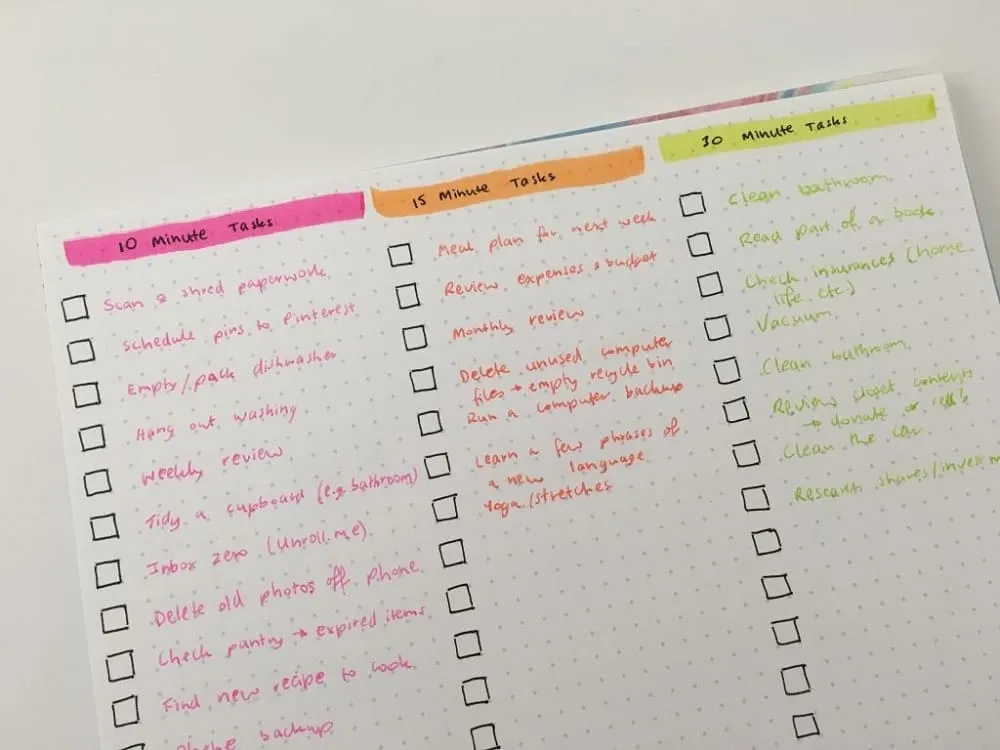 10 Minute Tasks
Scan & shred paperwork
Schedule pins to Pinterest
Empty/pack dishwasher
Hang out washing
Weekly review
Tidy a cupboard (e.g. bathroom)
Inbox zero (Unroll.me)
Delete old photos off phone
Check pantry → expired items
Find new recipe to cook
Phone backup
15 Minute Tasks
Meal plan for next week
Review expenses & budget
Monthly review
Delete unused computer
files → empty recycle bin
Run a computer backup
Learn a few phrases of
a new language
Yoga/stretches
30 Minute Tasks
Clean bathroom
Read part of a book
Check insurances (home
life, etc.)
Vacuum
Clean bathroom
Review closet contents
→ donate or
Clean the car
Research shares/